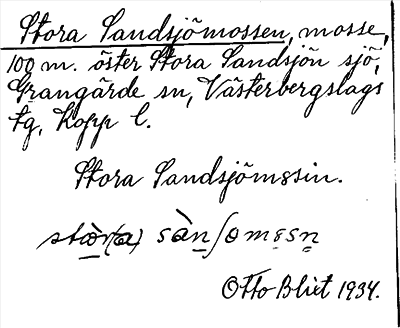 Stora Sandsjömossen, mosse,
100 m. öster Stora Sandsjön sjö,
Grangärde sn, Västerbergslags
tg, Kopp l.
Stora Sandsjömssin.
Otto Blixt 1934.